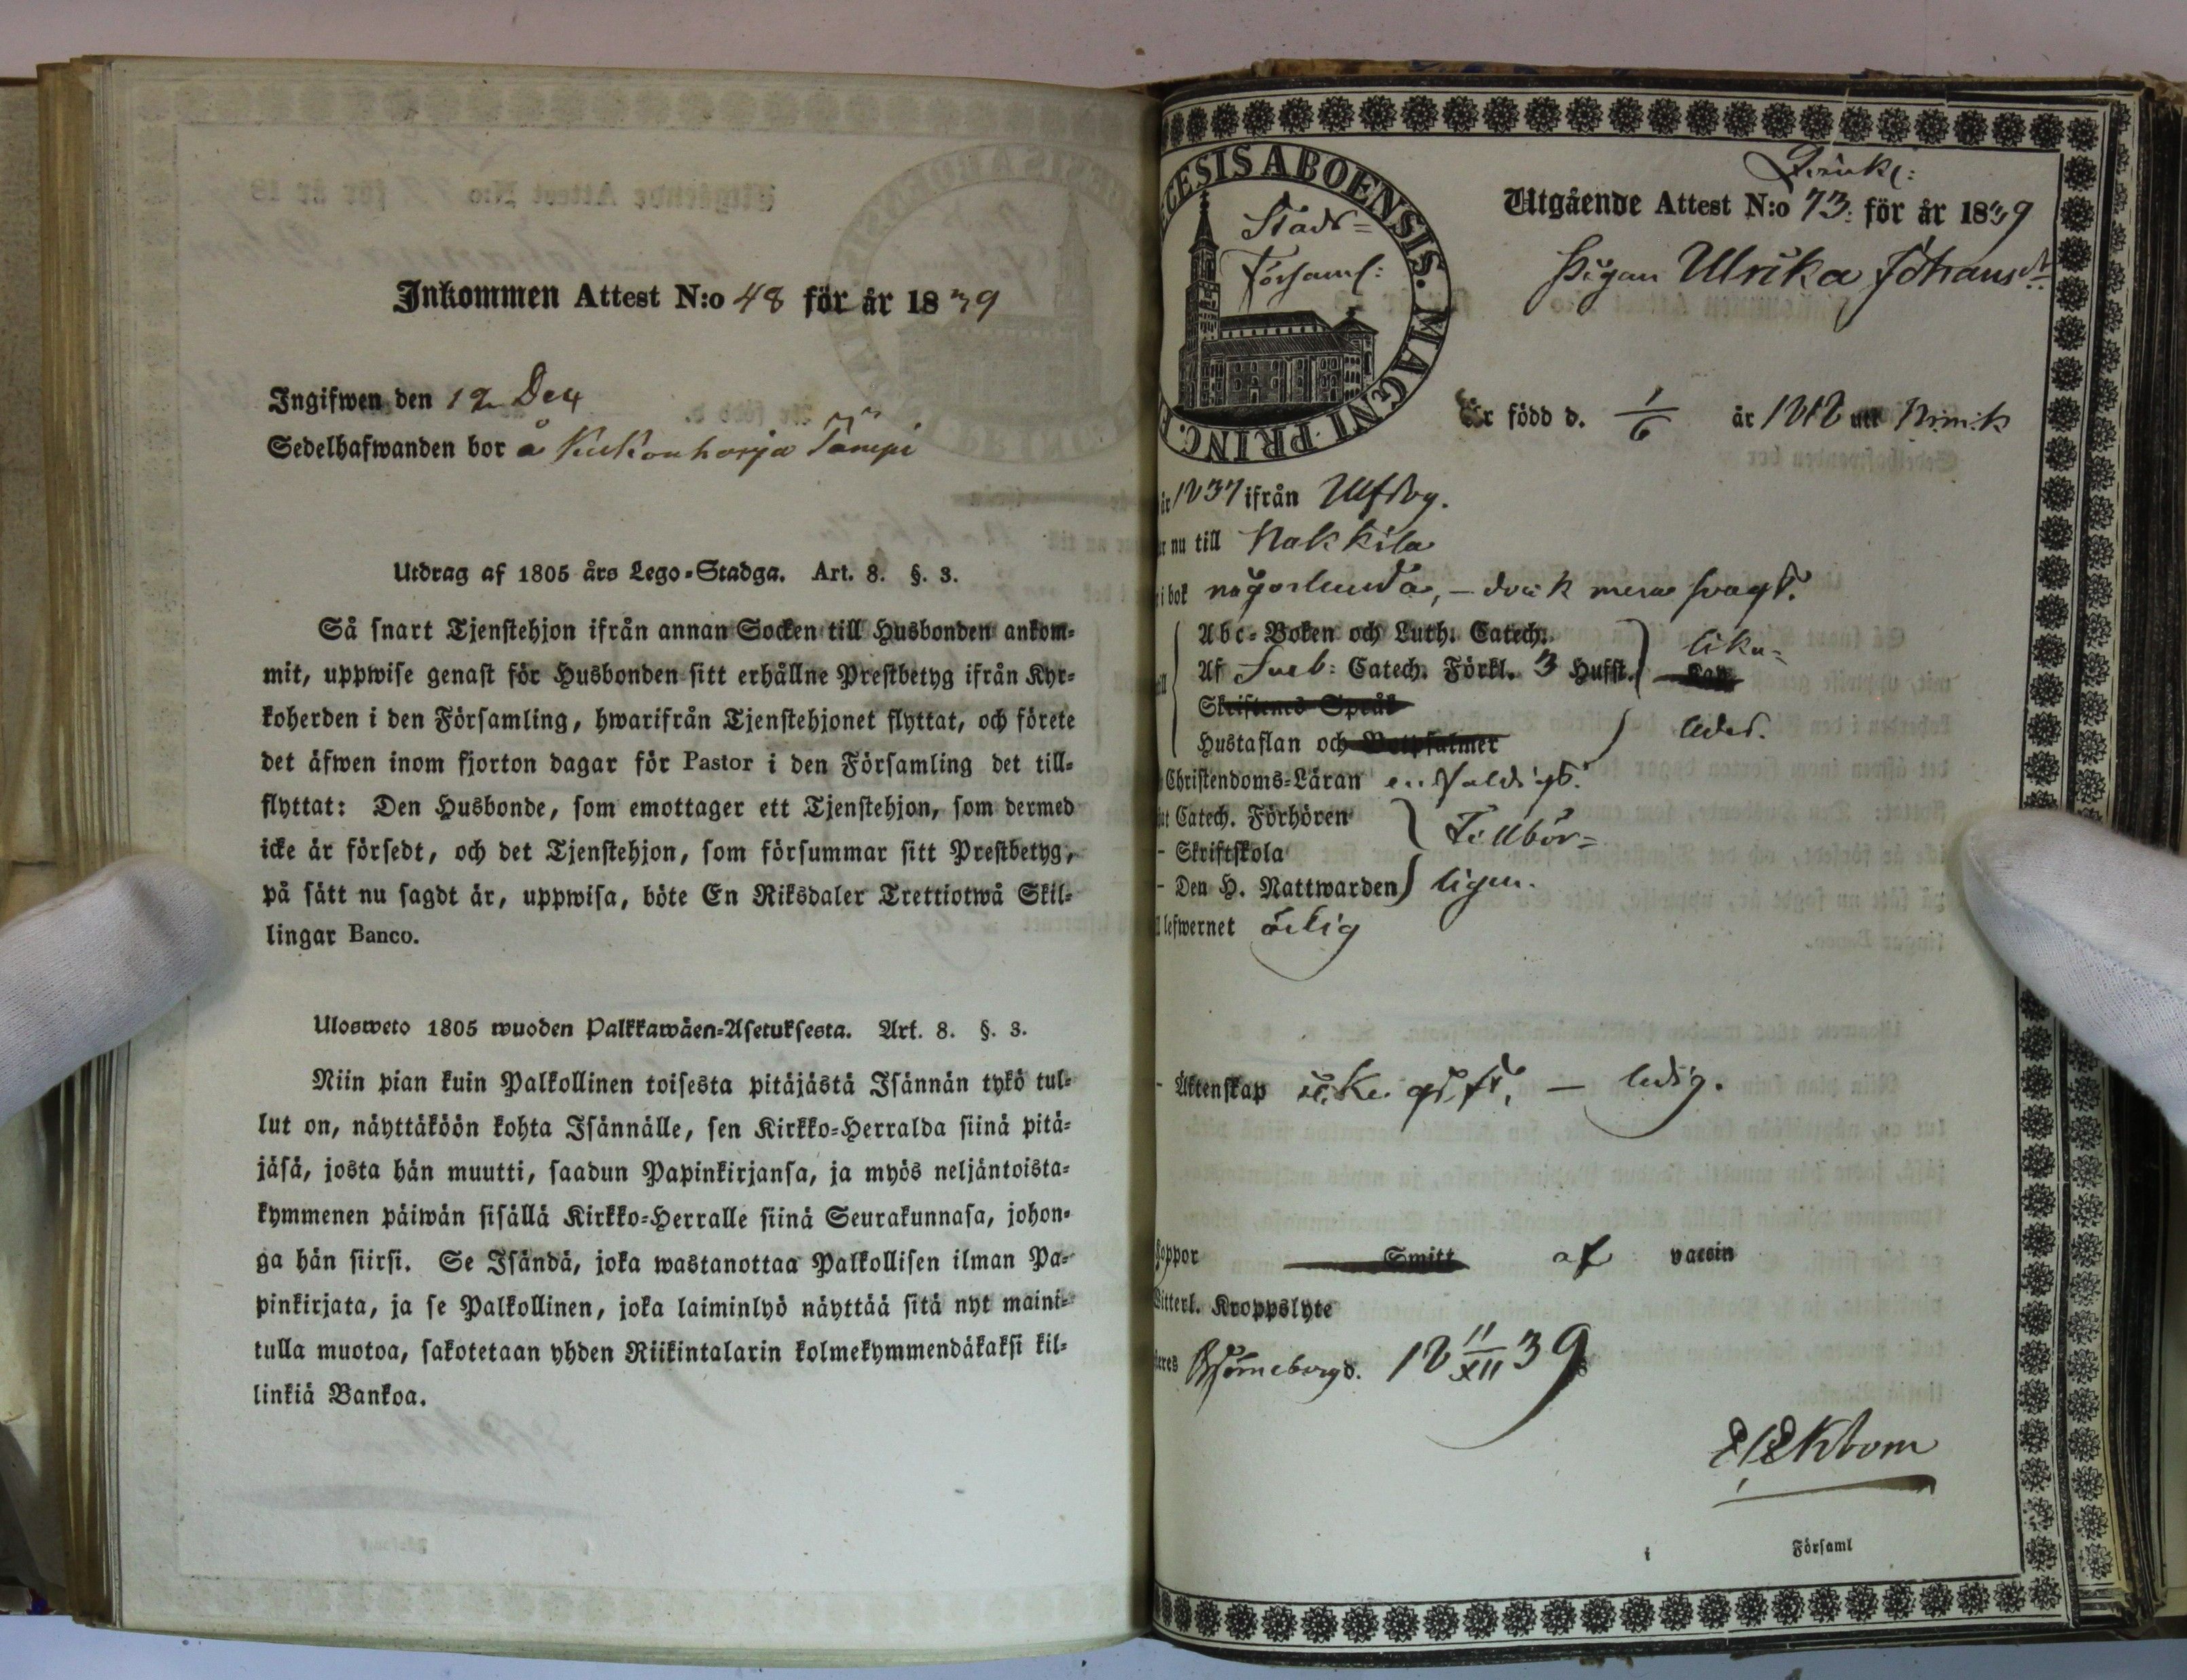 Inkommen Attest N:o 48 för år 1839
Ingifwen den 12 Dec
Sedelhafwanden bor å Kukonharja
Utdrag af 1805 års Lego-Stadga. Art. 8. §. 3.
Så snart Tjenstehjon ifrån annan Socken till Husbonden ankom-
mit, uppwise genast för Husbonden sitt erhållne Prestbetyg ifrån Kyr-
koherden i den Församling, hwarifrån Tjenstehjonet flyttat, och förete
det äfwen inom fjorton dagar för Pastor i den Församling det till-
flyttat: Den Husbonde, som emottager ett Tjenstehjon, som dermed
icke är försedt, och det Tjenstehjon, som försummar sitt Prestbetyg,
på sätt nu sagdt är, uppwisa, böte En Riksdaler Trettiotwå Skil-
lingar Banco.
Ulosweto 1805 wuoden Palkkawäen-Asetuksesta. Art. 8. §. 3.
Niin pian kuin Palkollinen toisesta pitäjästä Isännän tykö tul-
lut on, näyttäköön kohta Isännälle, sen Kirkko-Herralda siinä pitä-
jäsä, josta hän muutti, saadun Papinkirjansa, ja myös neljäntoista-
kymmenen päiwän sisällä Kirkko-Herralle siinä Seurakunnasa, johon-
ga hän siirsi. Se Isändä, joka wastanottaa Palkollisen ilman Pa-
pinkirjata, ja se Palkollinen, joka laiminlyö näyttää sitä nyt maini-
tulla muotoa, sakotetaan yhden Riikintalarin kolmekymmendäkaksi kil-
linkiä Bankoa.
CESIS ABOENSIS. MAGNI PRINC.
Stads-
Församl:
Utgående Attest N:o 73. för år 1839
Pigan Ulrika Johansdr
Är född d. 1/6 år 1818 uti
år 1837 ifrån Ulfsby.
nu till Nakkila
i bok någorlunda, – dock mera svagt.
Abc-Boken och Luth. Catech.
Af Sveb: Catech. Förkl. 3 Hufst. lika-
Skriftenes Språk
Hustaflan och Botpsalmer ledes.
Christendoms-Läran enfaldigt.
Catech. Förhören
- Skriftskola Tillbör-
- Den H. Nattwarden ligen.
lefwernet ärlig
- Äktenskap icke gift, – ledig.
koppor Smitt af vaccin
Witterl. Kroppslyte
Björneborg d. 18 11/XII 39
Ekbom
i Församl